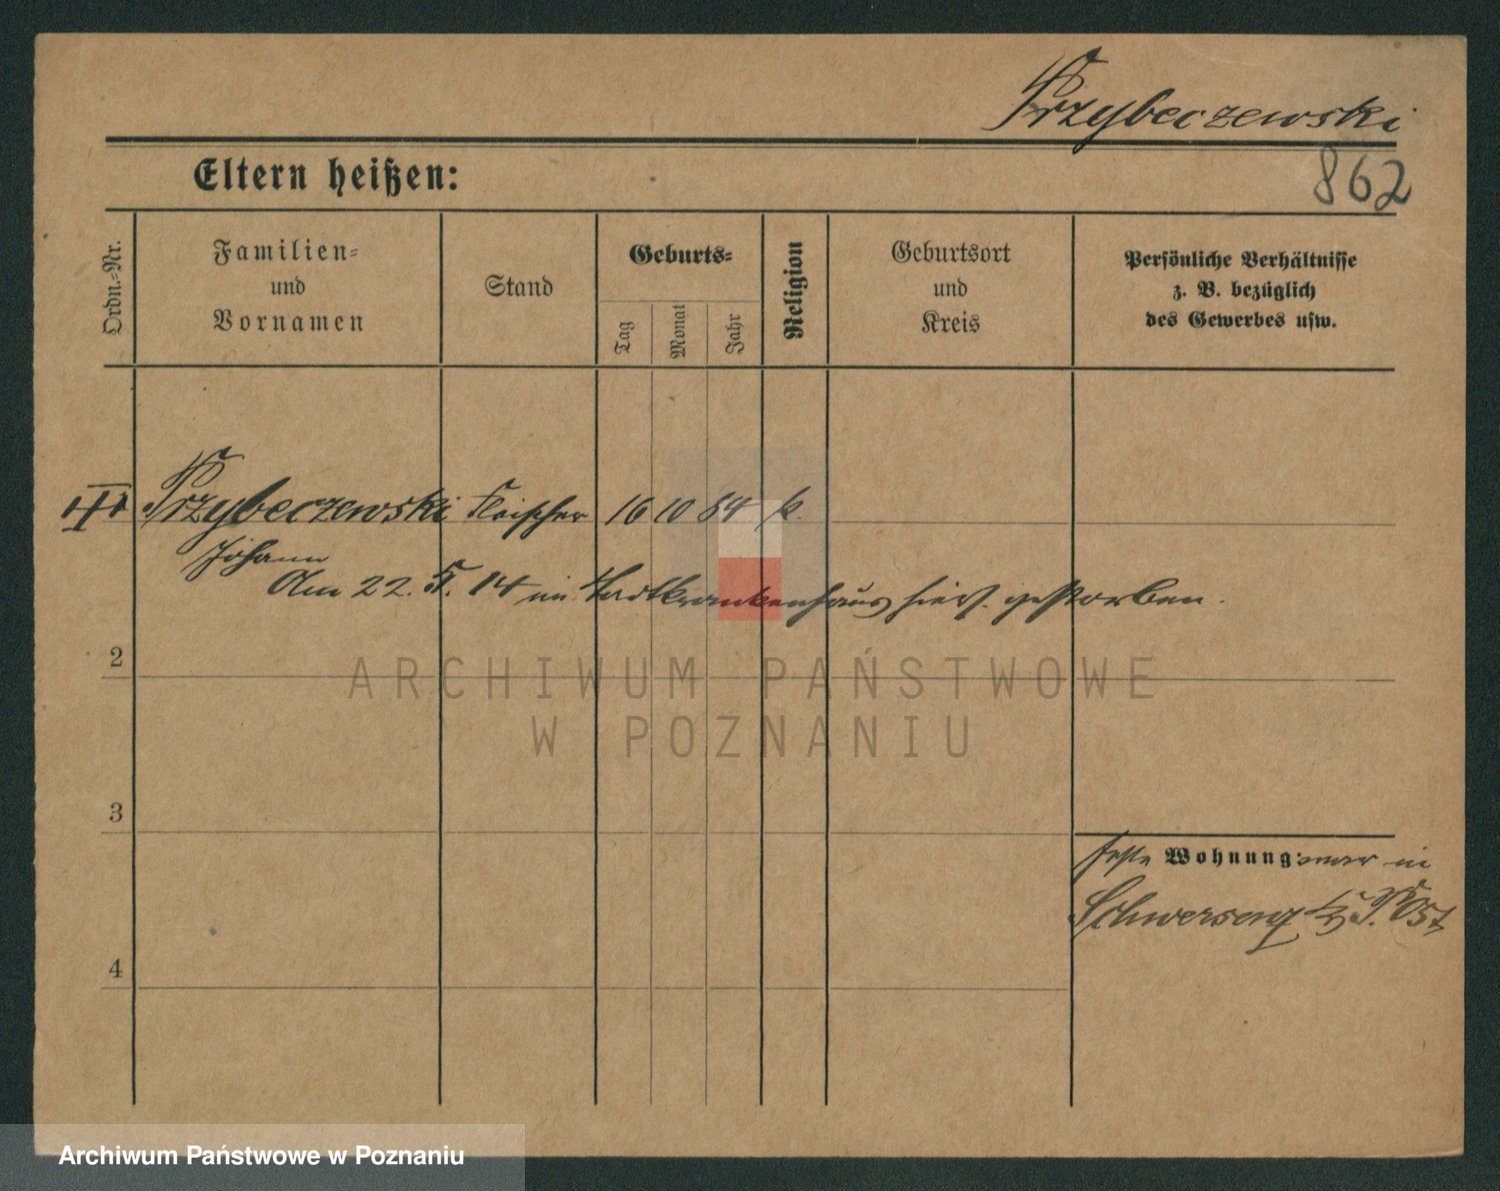 Przybeczewski
862
Eltern heißen:
Ordn.=Nr.
Familien=
und
Vornamen
Stand
Geburts=
Tag
Monat
Jahr
Religion
Geburtsort
und
Kreis
Persönliche Verhältnisse
z. B. bezüglich
des Gewerbes usw.
Przybeczewski Fleischer 16 10 84 k.
Johann
Am 22. 5. 14 im Stadtkrankenhaus hies. gestorben.
2
ARCHIWUM PAŃSTWOWE
W POZNANIU
3
feste Wohnung: war in
Schwersenz Ost
4
Archiwum Państwowe w Poznaniu